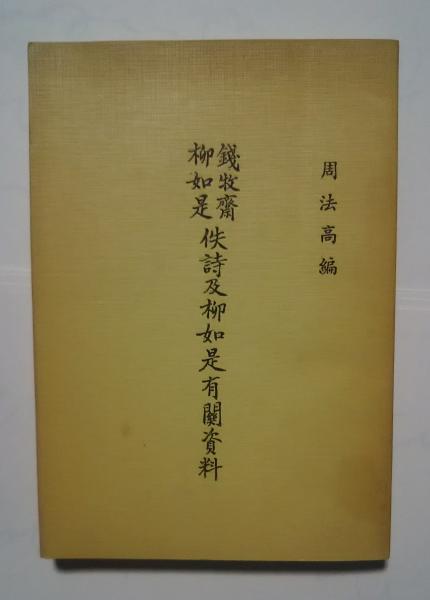 周法高編
錢牧齋
柳如是
佚詩及柳如是有關資料